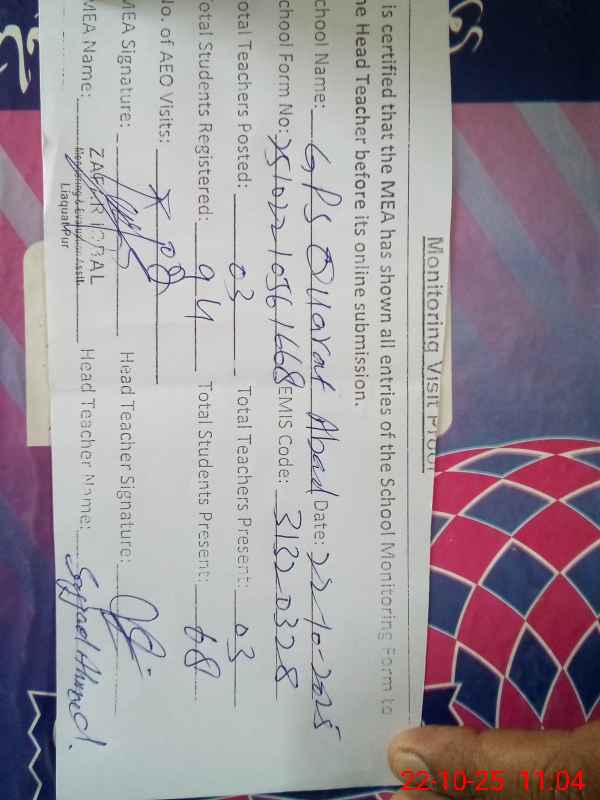 Monitoring Visit Proof
is certified that the MEA has shown all entries of the School Monitoring Form to
he Head Teacher before its online submission.
chool Name: GPS Qudrat Abad Date: 22-10-2025
chool Form No: EMIS Code: 31320328
otal Teachers Posted: 03 Total Teachers Present: 03
otal Students Registered: 94 Total Students Present: 68
No. of AEO Visits:
MEA Signature: Head Teacher Signature:
MEA Name: ZAFAR IQBAL Head Teacher Name: Sajjad Ahmed.
Monitoring & Evaluation Asstt.
Liaquat Pur
22-10-25 11:04